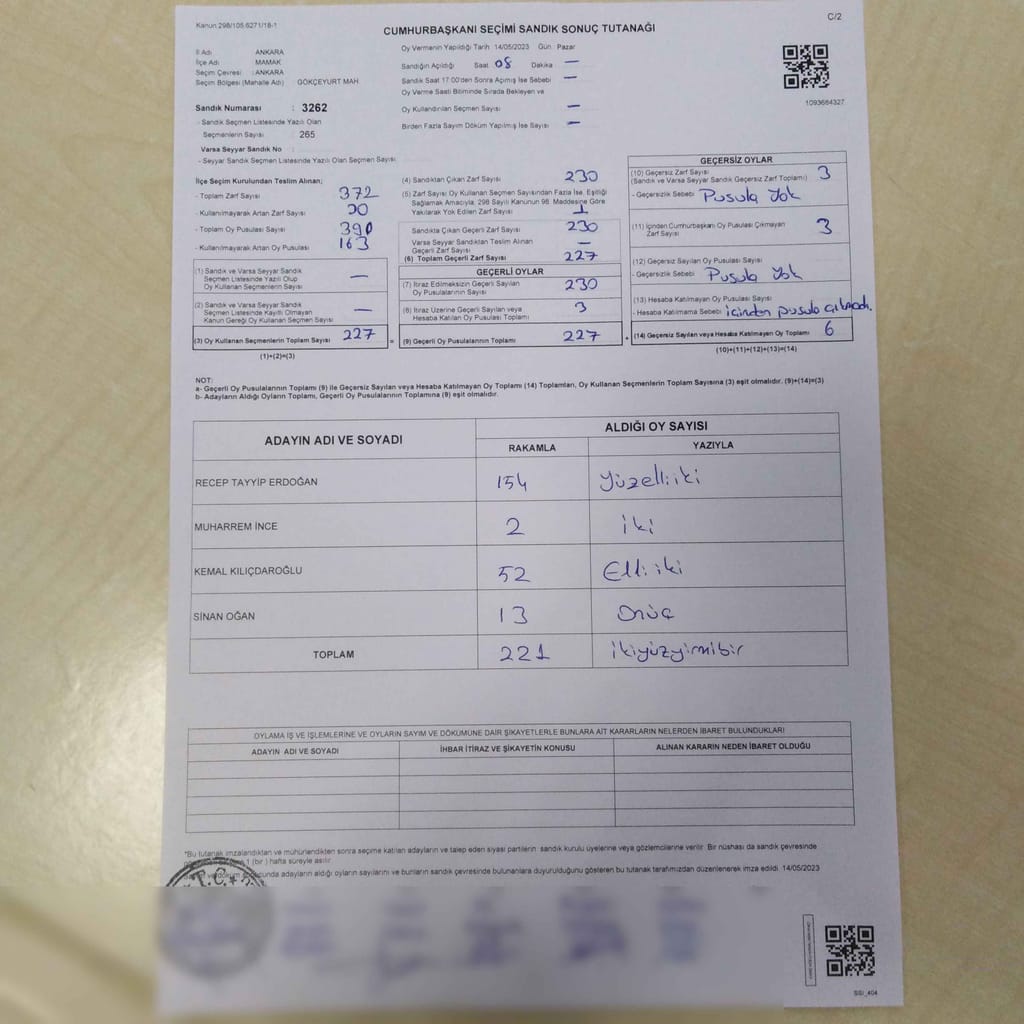 Kanun 298/105 6271/18-1
C/2
CUMHURBAŞKANI SEÇİMİ SANDIK SONUÇ TUTANAĞI
İl Adı ANKARA
İlçe Adı MAMAK
Seçim Çevresi : ANKARA
Seçim Bölgesi (Mahalle Adı) GÖKÇEYURT MAH.
Sandık Numarası : 3262
- Sandık Seçmen Listesinde Yazılı Olan
Seçmenlerin Sayısı 265
Varsa Seyyar Sandık No :
- Seyyar Sandık Seçmen Listesinde Yazılı Olan Seçmen Sayısı
Oy Vermenin Yapıldığı Tarih 14/05/2023 Gün Pazar
Sandığın Açıldığı Saat 08 Dakika —
Sandık Saat 17:00'den Sonra Açılmış İse Sebebi —
Oy Verme Saati Bitiminde Sırada Bekleyen ve
Oy Kullandırılan Seçmen Sayısı —
Birden Fazla Sayım Döküm Yapılmış İse Sayısı —
1093684327
İlçe Seçim Kurulundan Teslim Alınan;
- Toplam Zarf Sayısı 372
- Kullanılmayarak Artan Zarf Sayısı
- Toplam Oy Pusulası Sayısı 390
- Kullanılmayarak Artan Oy Pusulası 163
(1) Sandık ve Varsa Seyyar Sandık
Seçmen Listesinde Yazılı Olup
Oy Kullanan Seçmenlerin Sayısı —
(2) Sandık ve Varsa Seyyar Sandık
Seçmen Listesinde Kayıtlı Olmayan
Kanun Gereği Oy Kullanan Seçmen Sayısı —
(3) Oy Kullanan Seçmenlerin Toplam Sayısı 227 =
(1)+(2)=(3)
(4) Sandıktan Çıkan Zarf Sayısı 230
(5) Zarf Sayısı Oy Kullanan Seçmen Sayısından Fazla İse, Eşitliği
Sağlamak Amacıyla, 298 Sayılı Kanunun 98. Maddesine Göre
Yakılarak Yok Edilen Zarf Sayısı 1
Sandıkta Çıkan Geçerli Zarf Sayısı 230
Varsa Seyyar Sandıktan Teslim Alınan
Geçerli Zarf Sayısı —
(6) Toplam Geçerli Zarf Sayısı 227
GEÇERLİ OYLAR
(7) İtiraz Edilmeksizin Geçerli Sayılan
Oy Pusulalarının Sayısı 230
(8) İtiraz Üzerine Geçerli Sayılan veya
Hesaba Katılan Oy Pusulası Toplamı 3
(9) Geçerli Oy Pusulalarının Toplamı 227 +
GEÇERSİZ OYLAR
(10) Geçersiz Zarf Sayısı 3
(Sandık ve Varsa Seyyar Sandık Geçersiz Zarf Toplamı)
- Geçersizlik Sebebi Pusula Yok
(11) İçinden Cumhurbaşkanı Oy Pusulası Çıkmayan
Zarf Sayısı 3
(12) Geçersiz Sayılan Oy Pusulası Sayısı
- Geçersizlik Sebebi Pusula Yok
(13) Hesaba Katılmayan Oy Pusulası Sayısı
- Hesaba Katılmama Sebebi içinden pusula çıkmadı.
(14) Geçersiz Sayılan veya Hesaba Katılmayan Oy Toplamı 6
(10)+(11)+(12)+(13)=(14)
NOT:
a- Geçerli Oy Pusulalarının Toplamı (9) ile Geçersiz Sayılan veya Hesaba Katılmayan Oy Toplamı (14) Toplamları, Oy Kullanan Seçmenlerin Toplam Sayısına (3) eşit olmalıdır. (9)+(14)=(3)
b- Adayların Aldığı Oyların Toplamı, Geçerli Oy Pusulalarının Toplamına (9) eşit olmalıdır.
ADAYIN ADI VE SOYADI ALDIĞI OY SAYISI
RAKAMLA YAZIYLA
RECEP TAYYİP ERDOĞAN 154 Yüzelliiki
MUHARREM İNCE 2 iki
KEMAL KILIÇDAROĞLU 52 Elliiki
SİNAN OĞAN 13 Onüç
TOPLAM 221 ikiyüzyirmibir
OYLAMA İŞ VE İŞLEMLERİNE VE OYLARIN SAYIM VE DÖKÜMÜNE DAİR ŞİKAYETLERLE BUNLARA AİT KARARLARIN NELERDEN İBARET BULUNDUKLARI
ADAYIN ADI VE SOYADI İHBAR İTİRAZ VE ŞİKAYETİN KONUSU ALINAN KARARIN NEDEN İBARET OLDUĞU
*Bu tutanak imzalandıktan ve mühürlendikten sonra seçime katılan adayların ve talep eden siyasi partilerin sandık kurulu üyelerine veya gözlemcilerine verilir. Bir nüshası da sandık çevresinde
1 (bir) hafta süreyle asılır.
adayların aldığı oyların sayılarını ve bunların sandık çevresinde bulunanlara duyurulduğunu gösteren bu tutanak tarafımızdan düzenlenerek imza edildi. 14/05/2023
T.C.
SSI_404